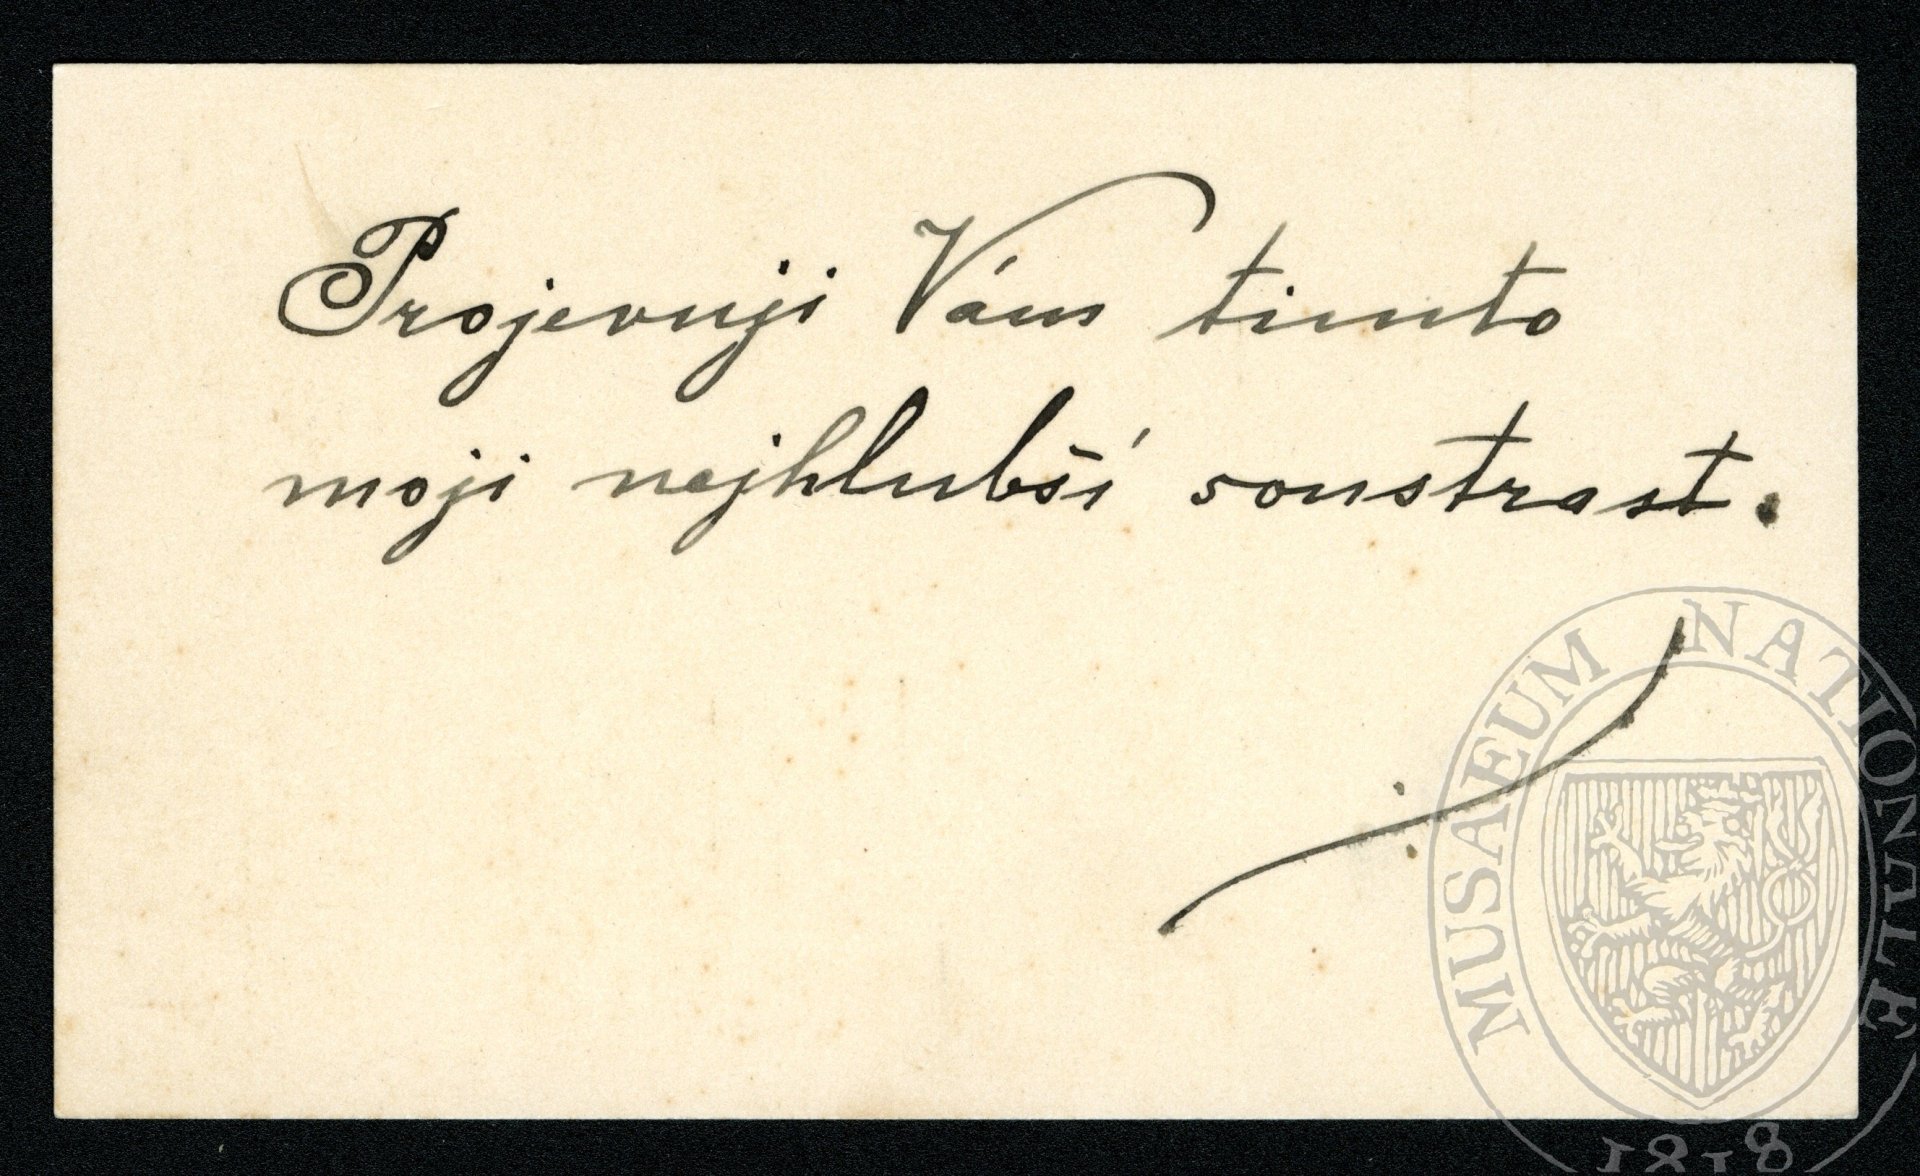 Projevuji Vám timto
moji nejhlubší soustrast.
MUSAEUM NATIONALE
1818